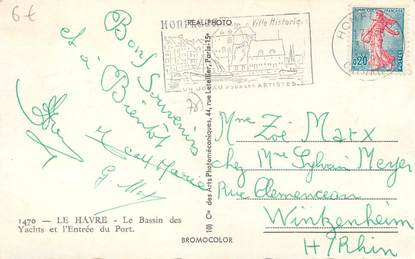 6€
REAL-PHOTO
HONFLEUR
Ville Historique
UN JOYAU POUR LES ARTISTES
HONFLEUR
CALVADOS
0,20
Bons Souvenirs
et à Bientôt
78
Mme Zoé Marx
chez Mme Sylvain Meyer
Rue Clemenceau
Wintzenheim
H/Rhin
1470 - LE HAVRE - Le Bassin des
Yachts et l'Entrée du Port.
Cie des Arts Photomécaniques, 44, rue Letellier, Paris-15e
BROMOCOLOR